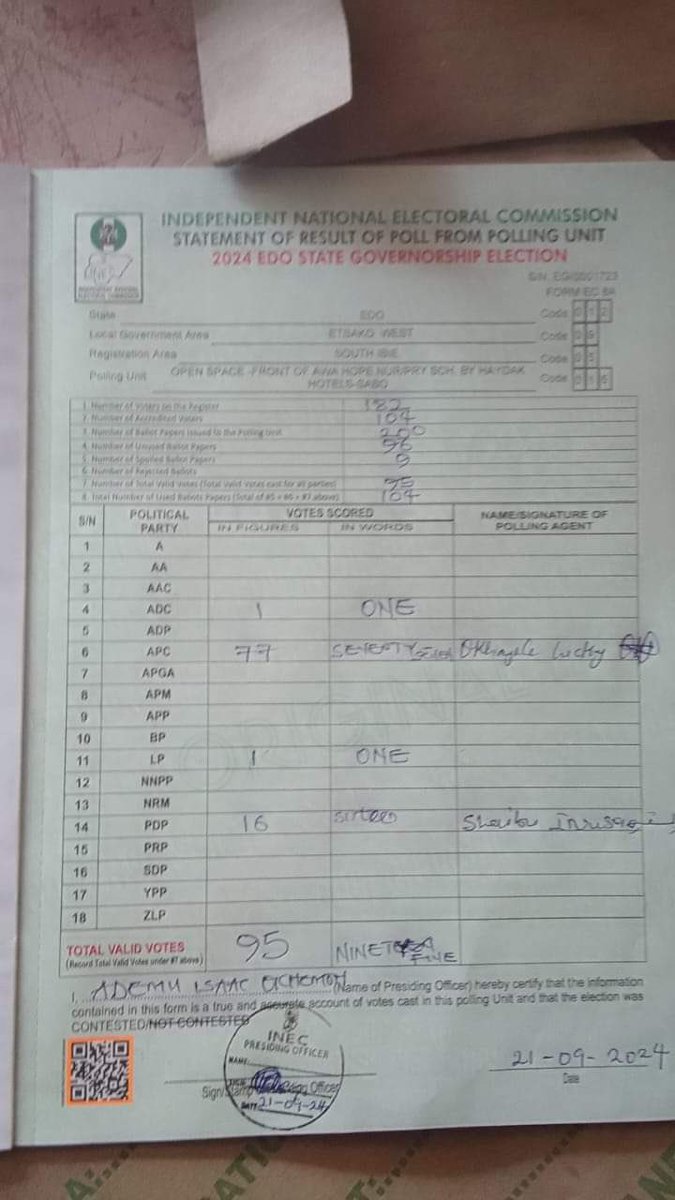 INDEPENDENT NATIONAL ELECTORAL COMMISSION
STATEMENT OF RESULT OF POLL FROM POLLING UNIT
2024 EDO STATE GOVERNORSHIP ELECTION
FORM EC 8A
State EDO Code 0 1 2
Local Government Area ETSAKO WEST Code
Registration Area SOUTH IBIE Code
Polling Unit OPEN SPACE -FRONT OF AWA HOPE NUR/PRY SCH. BY HAYDAK HOTELS-SABO Code
1. Number of Voters on the Register 182
2. Number of Accredited Voters 104
3. Number of Ballot Papers Issued to the Polling Unit 200
4. Number of Unused Ballot Papers 96
5. Number of Spoiled Ballot Papers 9
6. Number of Rejected Ballots
7. Number of Total Valid Votes (Total Valid Votes cast for all parties) 95
8. Total Number of Used Ballots Papers (Total of #5 + #6 + #7 above) 104
S/N POLITICAL PARTY VOTES SCORED NAME/SIGNATURE OF POLLING AGENT
IN FIGURES IN WORDS
1 A
2 AA
3 AAC
4 ADC 1 ONE
5 ADP
6 APC 77 SEVENTY Lucky
7 APGA
8 APM
9 APP
10 BP
11 LP 1 ONE
12 NNPP
13 NRM
14 PDP 16 sixteen Shaibu
15 PRP
16 SDP
17 YPP
18 ZLP
TOTAL VALID VOTES 95 FIVE
(Record Total Valid Votes under #7 above)
I, ADEMU ISAAC (Name of Presiding Officer) hereby certify that the information
contained in this form is a true and accurate account of votes cast in this polling Unit and that the election was
CONTESTED/NOT CONTESTED
INEC
PRESIDING OFFICER
NAME:
DATE 21-09-24
21-09-2024
Date